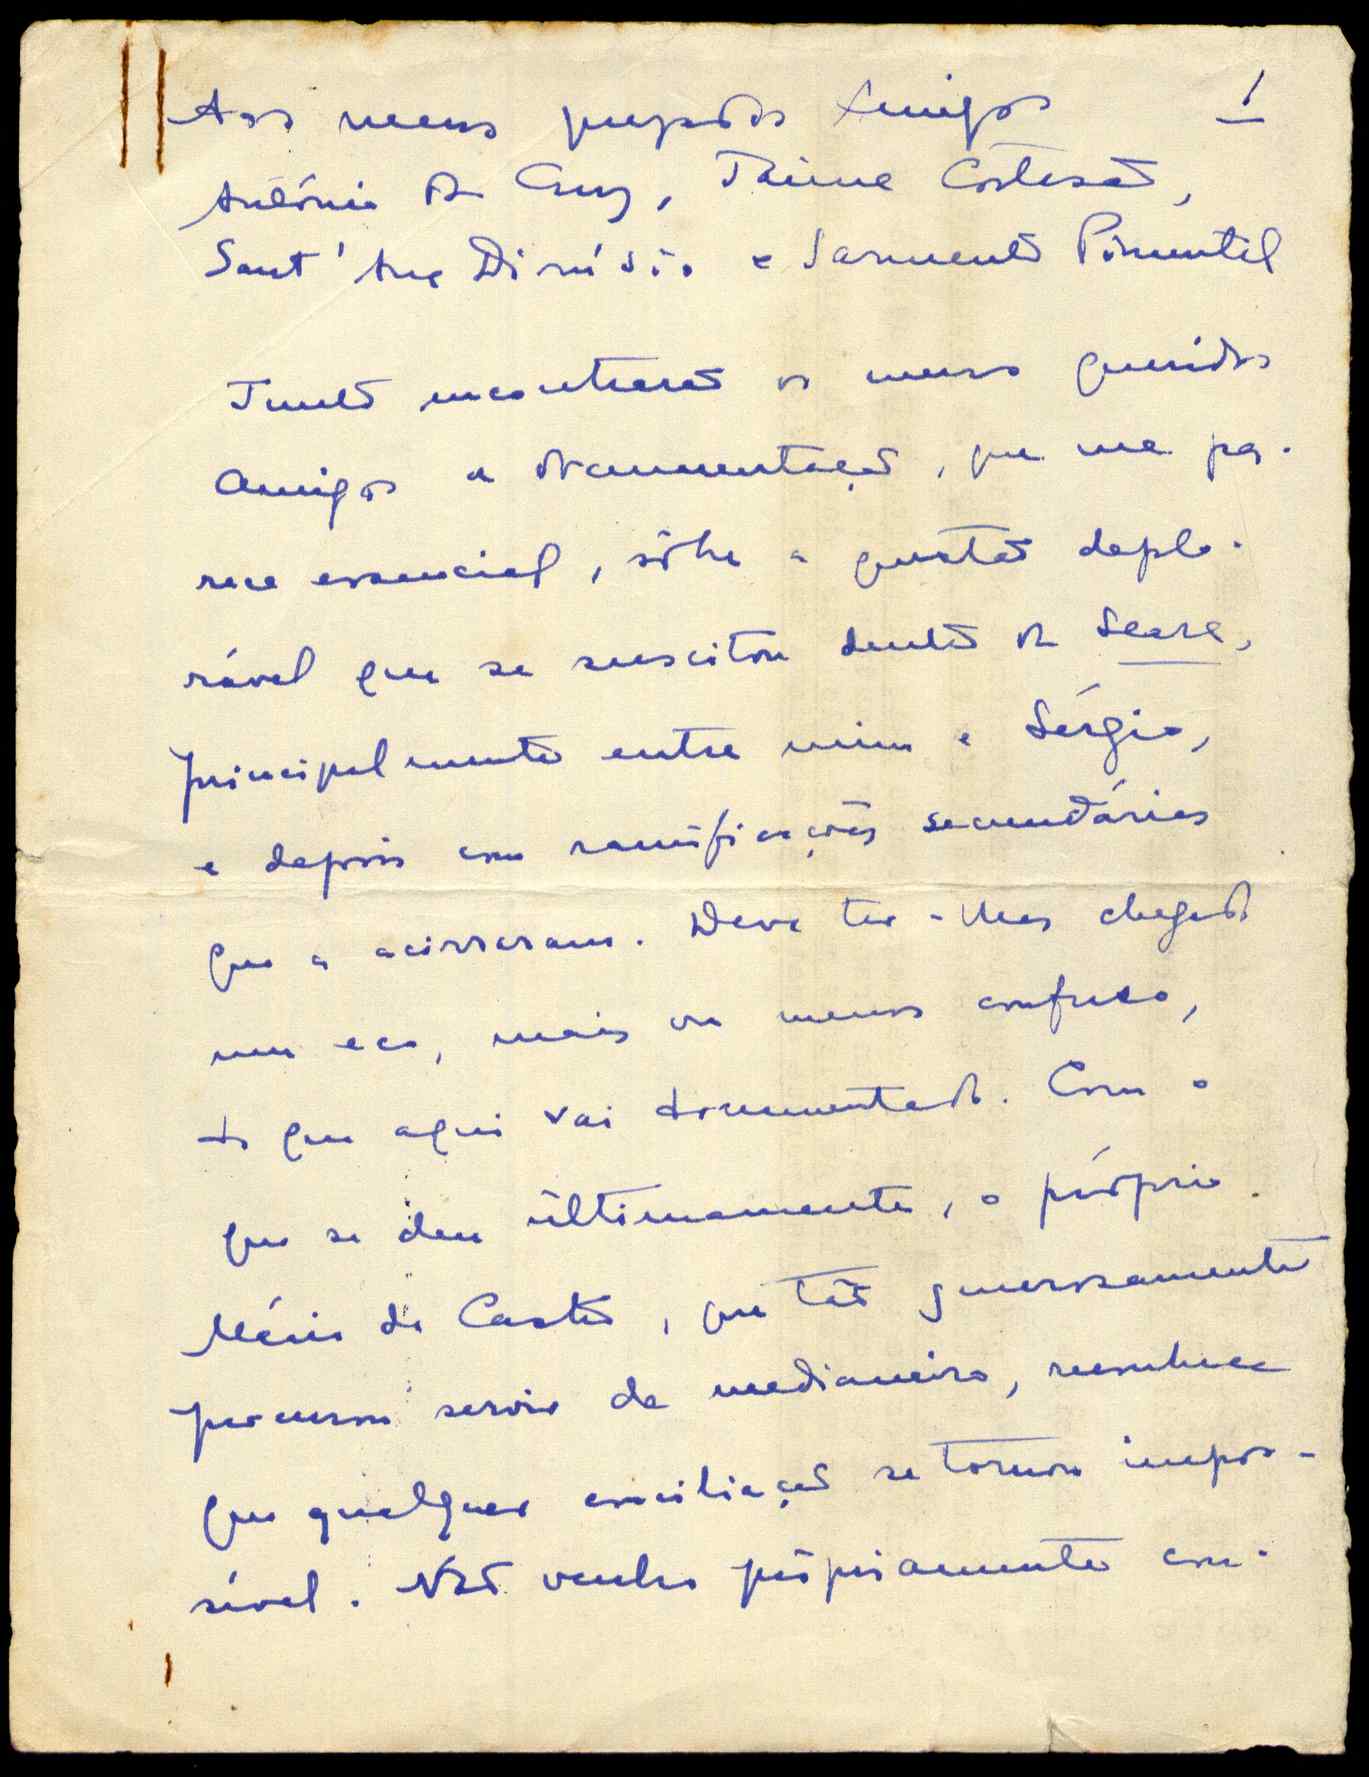 Aos meus prezados Amigos 1
António da Cruz, Jaime Cortesão,
Sant'Ana Dionísio e Sarmento Pimentel
Junto encontrarão os meus queridos
Amigos a documentação, que me pa-
rece essencial, sôbre a questão deplo-
rável que se suscitou dentro da Seara,
principalmente entre mim e Sérgio,
e depois com ramificações secundárias
que a acirraram. Deve ter-lhes chegado
um eco, mais ou menos confuso,
do que aqui vai documentado. Com o
que se deu ùltimamente, o próprio
de Castro, que tão generosamente
procurou servir de medianeiro, reconhece
que qualquer conciliação se tornou impos-
sível. Não venho pròpriamente con-